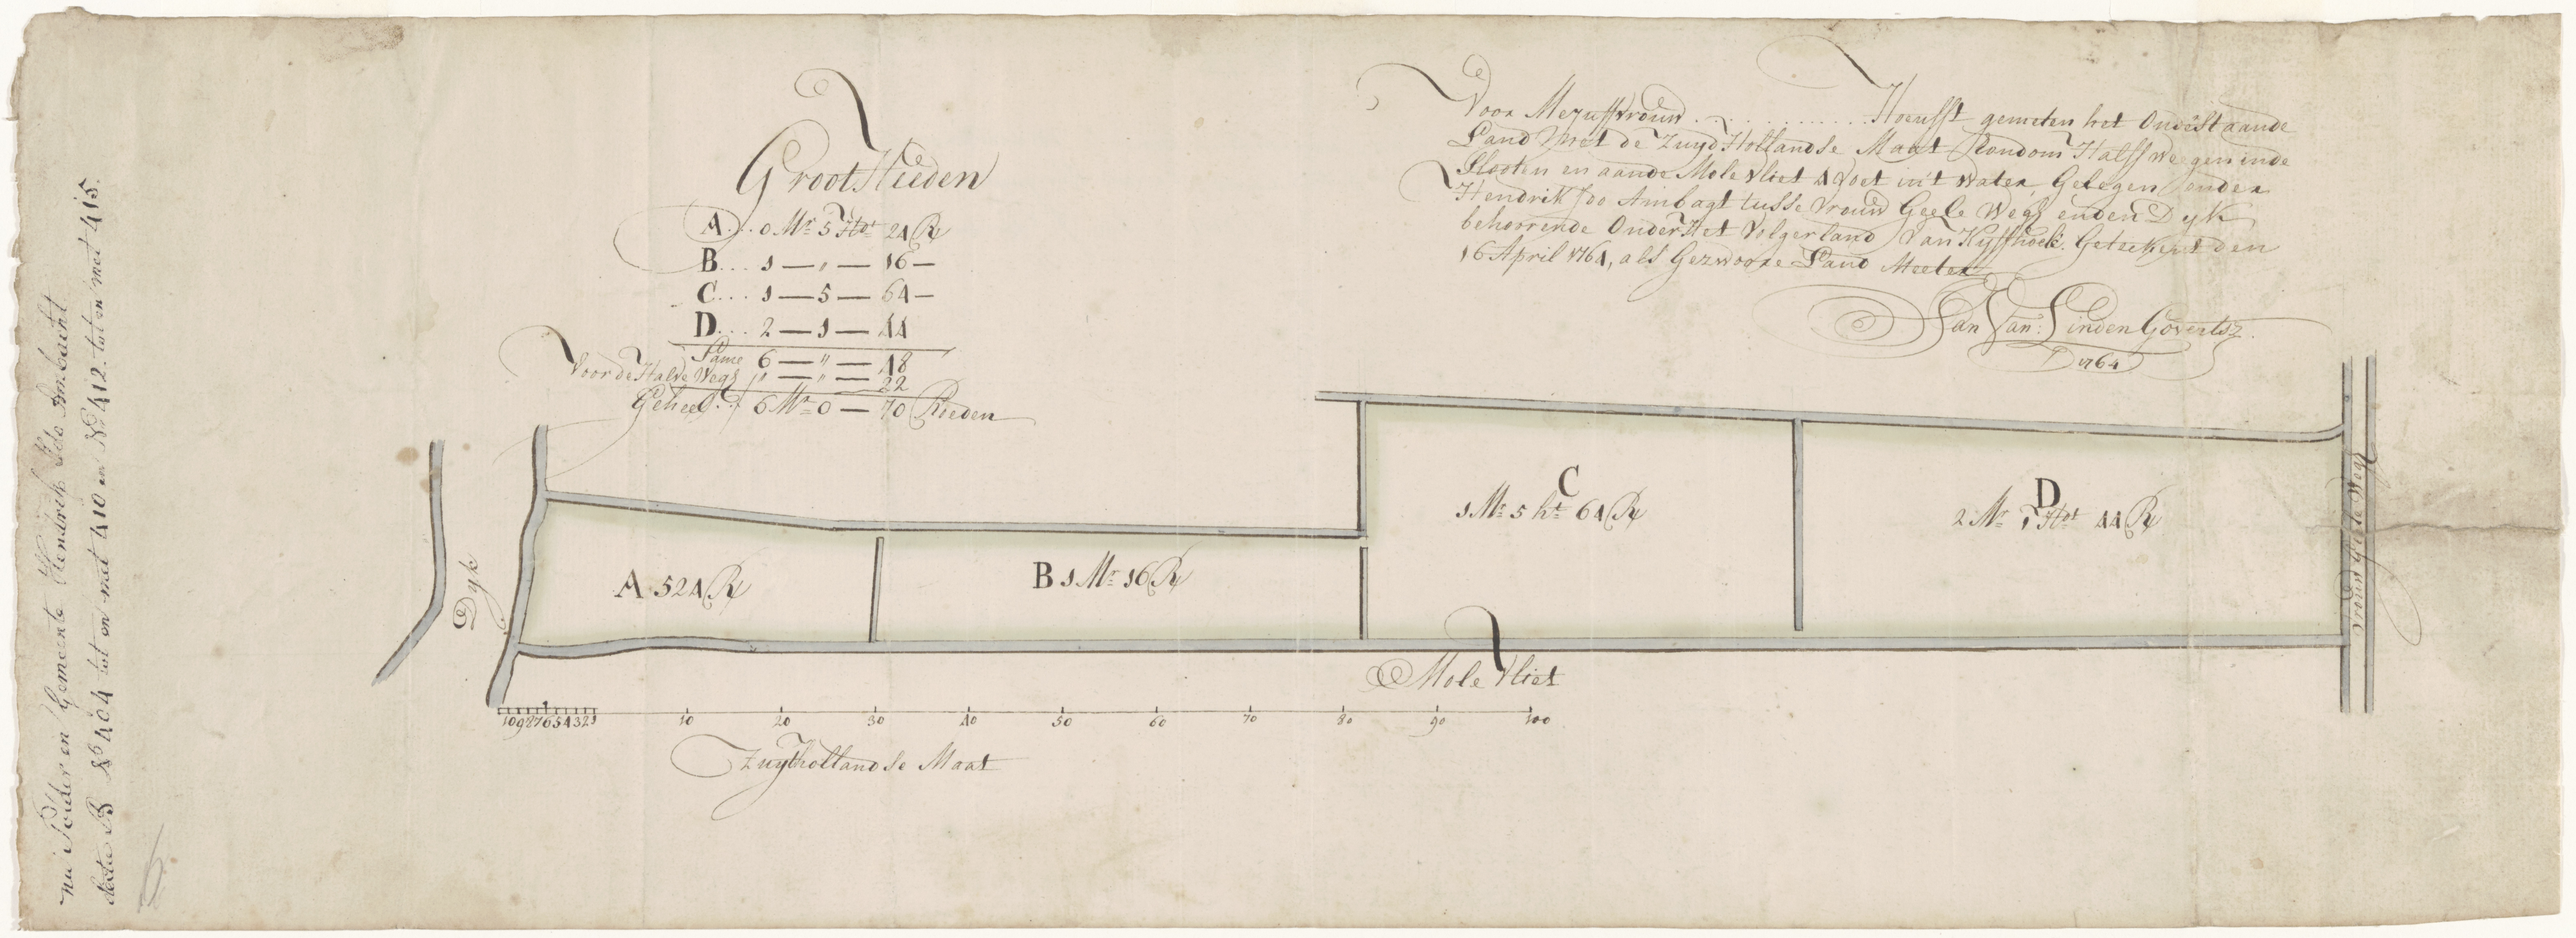 Groottheeden
A... 0 Mr 5 Hot 24 R
B... 1 — „ — 16 —
C... 1 — 5 — 64 —
D... 2 — 1 — 44
Same 6 — „ — 48
Voor de Halve Wegh „ — „ — 22
Geheel... 6 Mr 0 — 70 Roeden
Voor Mejuffvrouw ............. Hoeufft gemeten het Onderstaande
Land Met de Zuyd Hollandse Maat Rondom Halff wegen inde
Slooten en aande Mole Vliet 4 Voet in't Water, Gelegen onder
Hendrik Ido Ambagt tusse Vrouw Geele Wegh en den Dyk
behoorende Onder Het Volgerland Van Kyffhoek. Getekent den
16 April 1764, als Gezwoore Land Meeter
Jan Van: Linden Govertsz.
1764
A 524 R
B 1 Mr 16 R
C
1 Mr 5 ht 64 R
D
2 Mr 1 Hot 44 R
Dyk
Mole Vliet
Vrouw Geele Wegh
10 9 8 7 6 5 4 3 2 1 10 20 30 40 50 60 70 80 90 100
Zuythollandse Maat
nu Polder en Gemeente Hendrik Ido Ambacht
Sectie B No 404 tot en met 410 en No 412 tot en met 415.